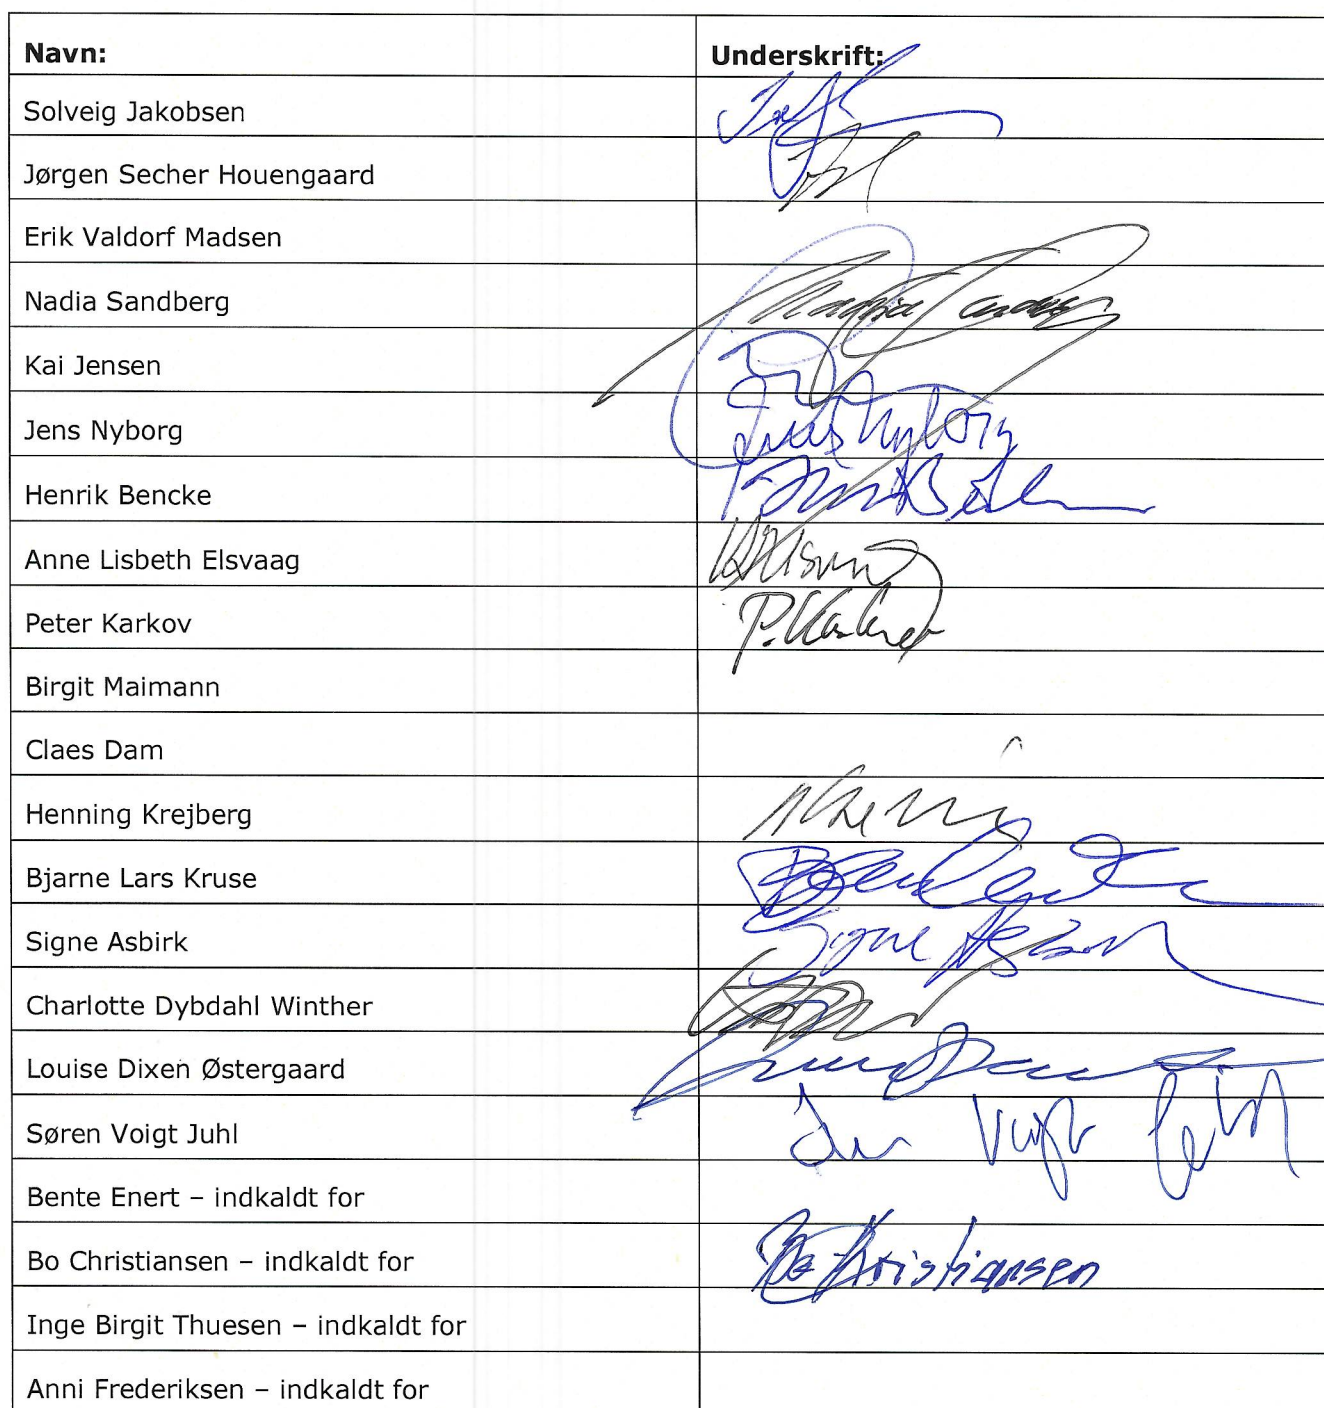 Navn: Underskrift:
Solveig Jakobsen
Jørgen Secher Houengaard
Erik Valdorf Madsen
Nadia Sandberg
Kai Jensen
Jens Nyborg Jens Nyborg
Henrik Bencke
Anne Lisbeth Elsvaag
Peter Karkov P. Karkov
Birgit Maimann
Claes Dam
Henning Krejberg
Bjarne Lars Kruse
Signe Asbirk Signe Asbirk
Charlotte Dybdahl Winther
Louise Dixen Østergaard
Søren Voigt Juhl
Bente Enert – indkaldt for
Bo Christiansen – indkaldt for Bo Christiansen
Inge Birgit Thuesen – indkaldt for
Anni Frederiksen – indkaldt for